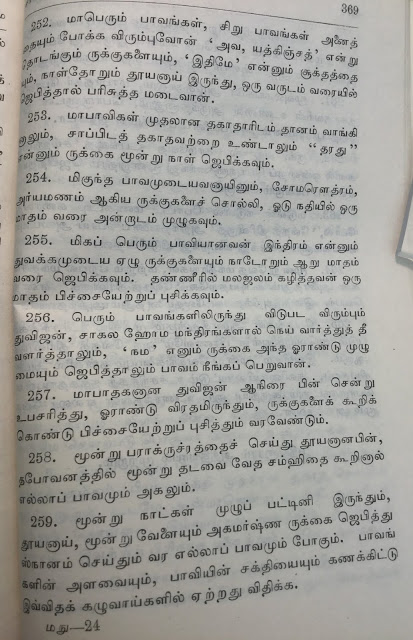 369
252. மாபெரும் பாவங்கள், சிறு பாவங்கள் அனைத்
தையும் போக்க விரும்புவோன் ‘ அவ, யத்கிஞ்சத் ’ என்று
தொடங்கும் ருக்குகளையும், ‘ இதிமே ’ என்னும் சூக்தத்தை
யும், நாள்தோறும் தூயனாய் இருந்து, ஒரு வருடம் வரையில்
ஜெபித்தால் பரிசுத்த மடைவான்.
253. மாபாவிகள் முதலான தகாதாரிடம் தானம் வாங்கி
னாலும், சாப்பிடத் தகாதவற்றை உண்டாலும் “ தரது ”
என்னும் ருக்கை மூன்று நாள் ஜெபிக்கவும்.
254. மிகுந்த பாவமுடையவனாயினும், சோமரௌத்ரம்,
அர்யமணம் ஆகிய ருக்குகளைச் சொல்லி, ஓடு நதியில் ஒரு
மாதம் வரை அன்றாடம் முழுகவும்.
255. மிகப் பெரும் பாவியானவன் இந்திரம் என்னும்
துவக்கமுடைய ஏழு ருக்குகளையும் நாடோறும் ஆறு மாதம்
வரை ஜெபிக்கவும். தண்ணீரில் மலஜலம் கழித்தவன் ஒரு
மாதம் பிச்சையேற்றுப் புசிக்கவும்.
256. பெரும் பாவங்களிலிருந்து விடுபட விரும்பும்
துவிஜன், சாகல ஹோம மந்திரங்களால் நெய் வார்த்துத் தீ
வளர்த்தாலும், ‘ நம ’ எனும் ருக்கை அந்த ஓராண்டு முழு
மையும் ஜெபித்தாலும் பாவம் நீங்கப் பெறுவான்.
257. மாபாதகனான துவிஜன் ஆநிரை பின் சென்று
உபசரித்து, ஓராண்டு விரதமிருந்தும், ருக்குகளைக் கூறிக்
கொண்டு பிச்சையேற்றுப் புசித்தும் வரவேண்டும்.
258. மூன்று பராக்ருச்ரத்தைச் செய்து தூயனானபின்,
தபோவனத்தில் மூன்று தடவை வேத சம்ஹிதை கூறினால்
எல்லாப் பாவமும் அகலும்.
259. மூன்று நாட்கள் முழுப் பட்டினி இருந்தும்,
தூயனாய், மூன்று வேளையும் அகமர்ஷண ருக்கை ஜெபித்து
ஸ்நானம் செய்தும் வர எல்லாப் பாவமும் போகும். பாவங்
களின் அளவையும், பாவியின் சக்தியையும் கணக்கிட்டு
இவ்விதக் கழுவாய்களில் ஏற்றது விதிக்க.
மது—24